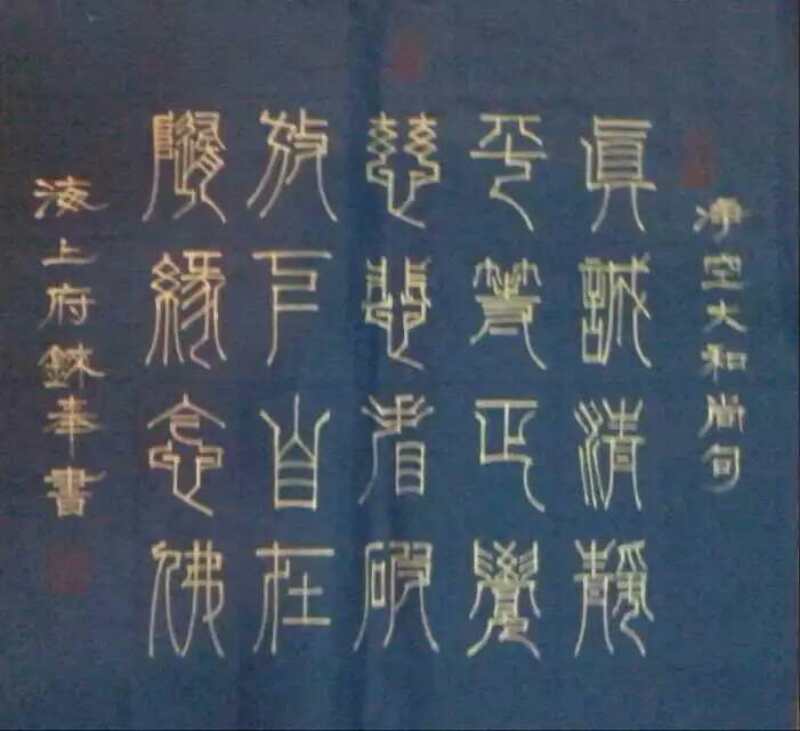 淨空大和尚句
眞誠清靜
平等正覺
慈悲看破
放下自在
隨緣念佛
海上府奉書